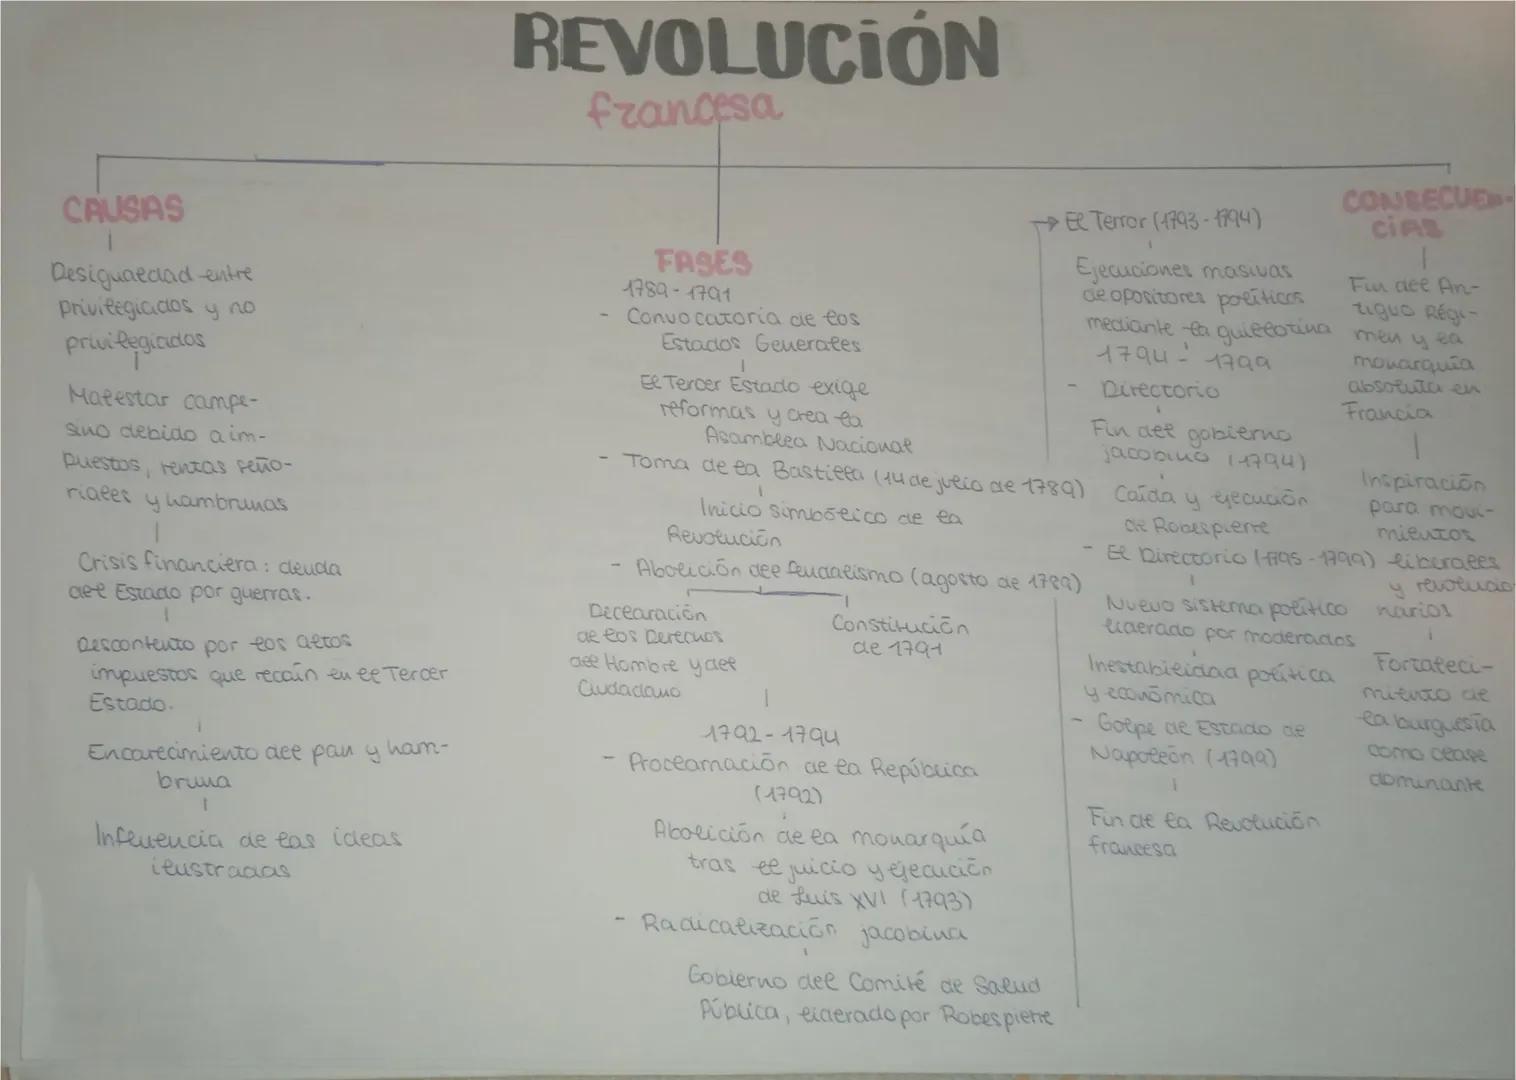 REVOLUCIÓN
francesa
CAUSAS
Desigualdad entre
privilegiados y no
privilegiados
Malestar campe-
sino debido a im-
puestos, rentas seño-
riales y hambrunas
Crisis financiera: deuda
del Estado por guerras.
Descontento por los altos
impuestos que recaín en el Tercer
Estado.
Encarecimiento del pan y ham-
bruna
Influencia de las ideas
ilustradas
FASES
1789-1791
- Convocatoria de los
Estados Generales
El Tercer Estado exige
reformas y crea la
Asamblea Nacional
- Toma de la Bastilla (14 de julio de 1789)
Inicio simbólico de la
Revolución
- Abolición del feudalismo (agosto de 1789)
Declaración
de los Derechos
del Hombre y del
Ciudadano
Constitución
de 1791
1792-1794
- Proclamación de la República
(1792)
Abolición de la monarquía
tras el juicio y ejecución
de Luis XVI (1793)
- Radicalización jacobina
Gobierno del Comité de Salud
Pública, liderado por Robespierre
→ El Terror (1793-1794)
Ejecuciones masivas
de opositores políticos
mediante la guillotina
1794-1799
- Directorio
Fin del gobierno
jacobino (1794)
Caída y ejecución
de Robespierre
- El Directorio (1795-1799)
Nuevo sistema político
liderado por moderados
Inestabilidad política
y económica
- Golpe de Estado de
Napoleón (1799)
Fin de la Revolución
francesa
CONSECUEN-
CIAS
Fin del An-
tiguo Régi-
men y la
monarquía
absoluta en
Francia
Inspiración
para movi-
mientos
liberales
y revolucio
narios
Fortaleci-
miento de
la burguesía
como clase
dominante